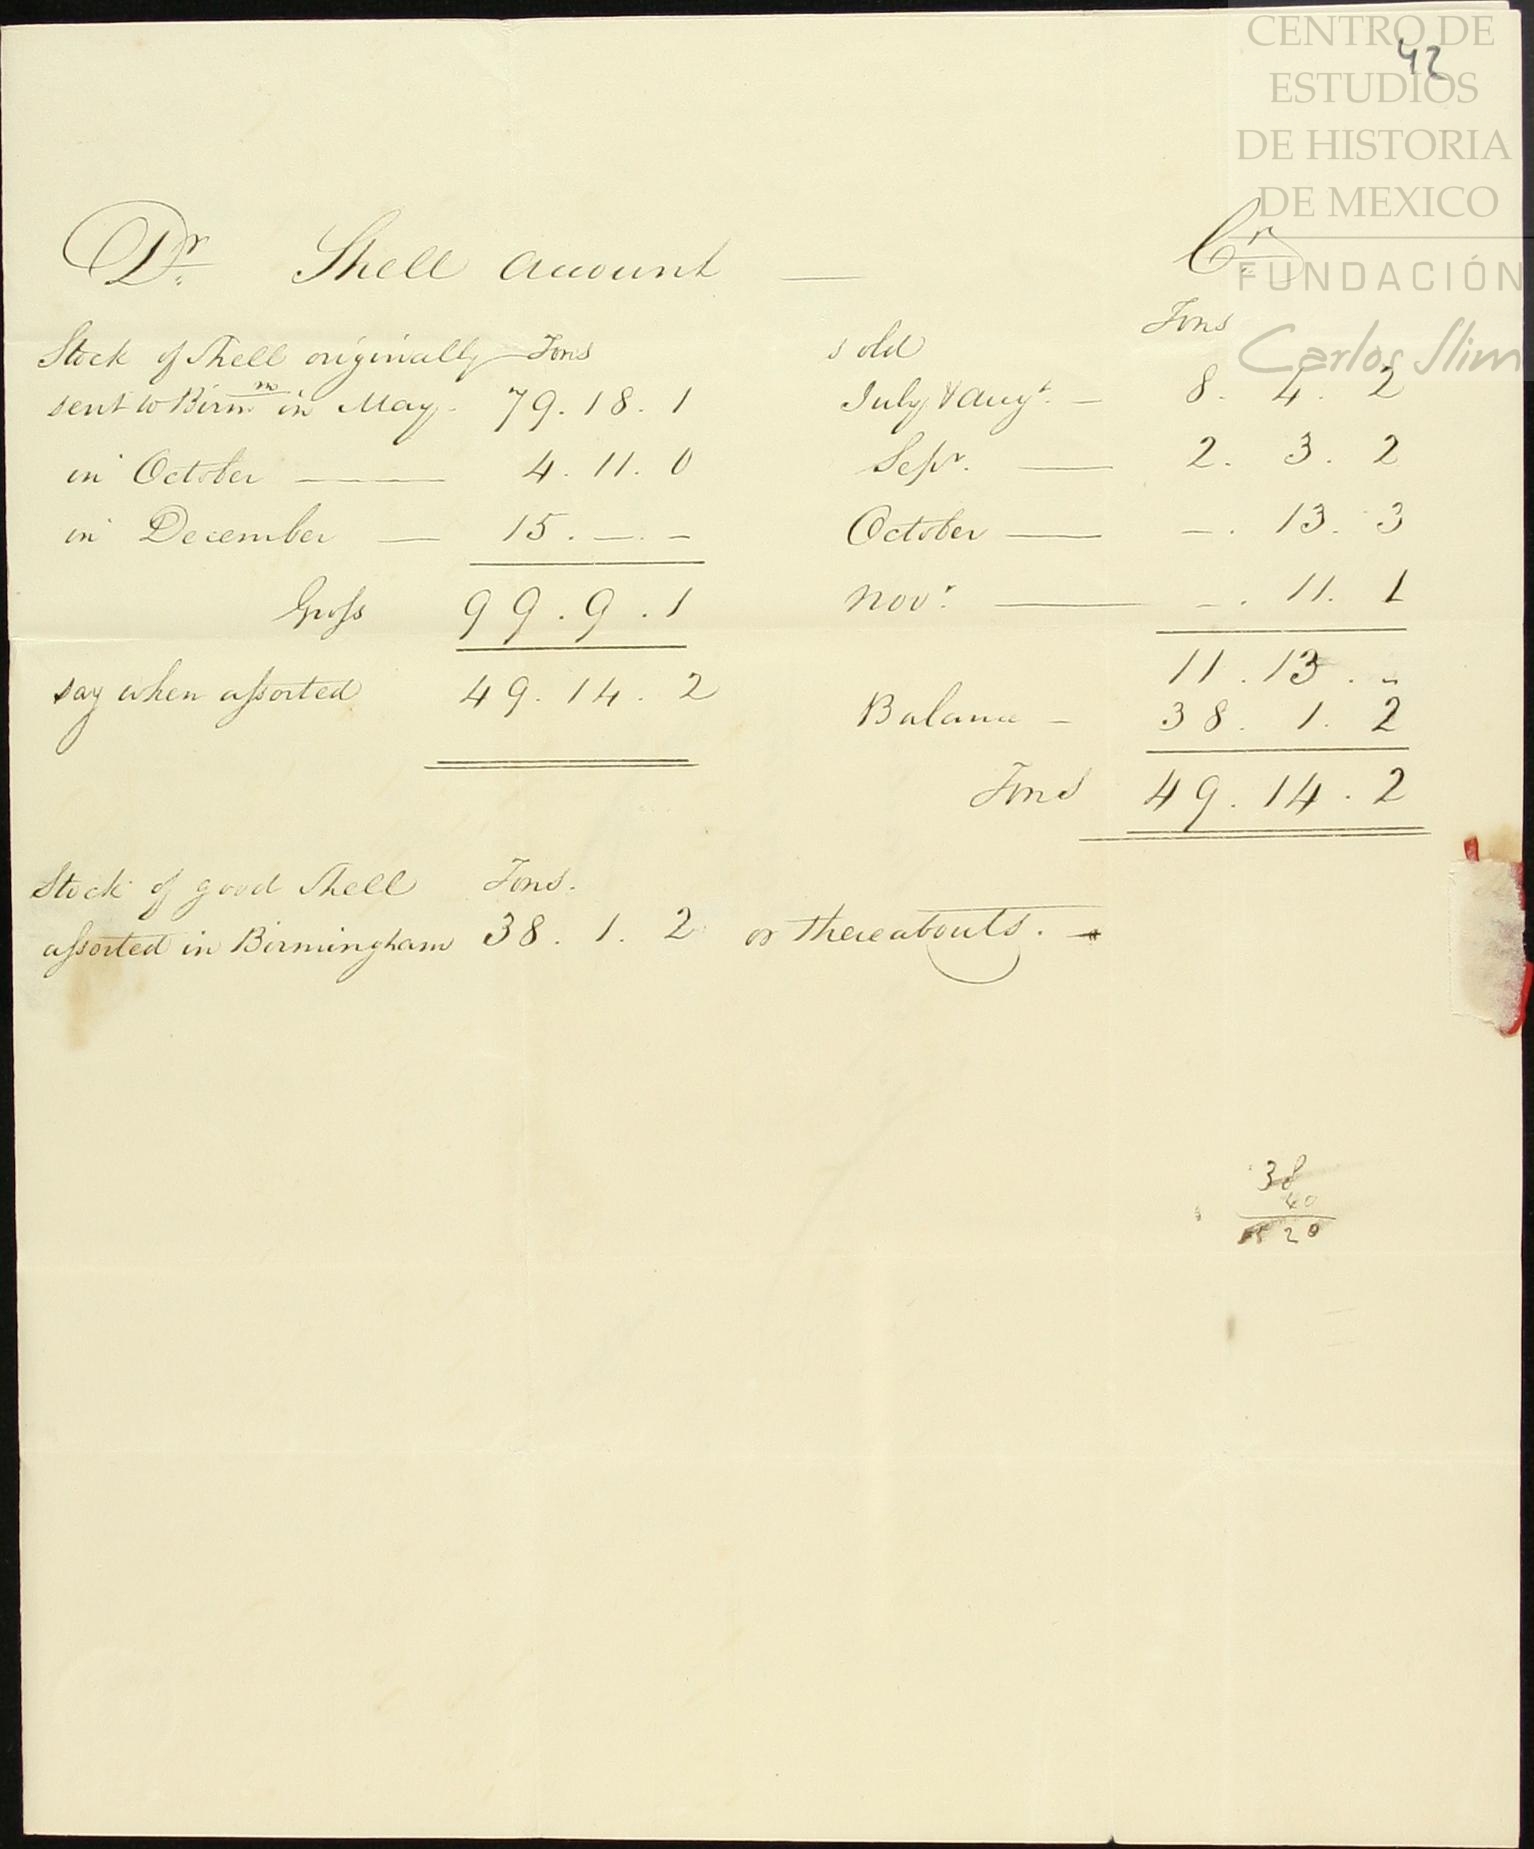 CENTRO DE
ESTUDIOS
DE HISTORIA
DE MEXICO
FUNDACIÓN
Carlos Slim
42
Dr. Shell account — Cr.
Stock of Shell originally Tons
sent to Birmm in May. 79. 18. 1
in October — 4. 11. 0
in December — 15. — . —
Gross 99. 9. 1
say when assorted 49. 14. 2
sold Tons
July & Augt. — 8. 4. 2
Sepr. — 2. 3. 2
October — —. 13. 3
Novr. — —. 11. 1
11. 13. „
Balance — 38. 1. 2
Tons 49. 14. 2
Stock of good Shell Tons.
assorted in Birmingham 38. 1. 2 or thereabouts. —
38
40
20